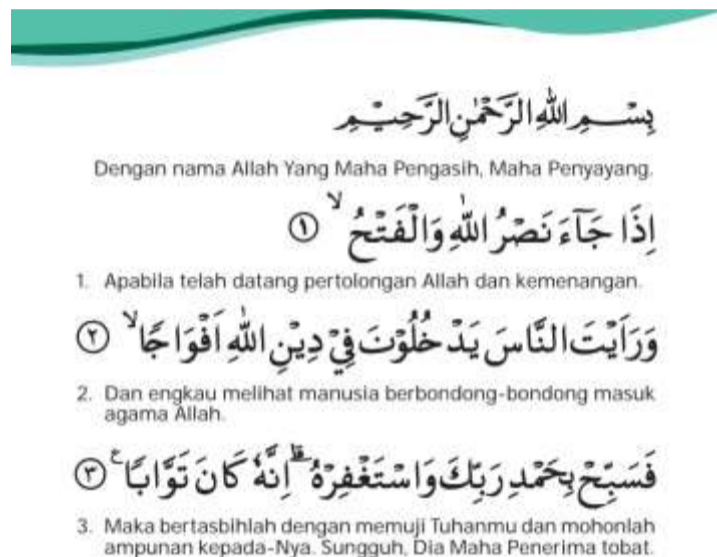 بِسْـــمِ اللّٰهِ الرَّحْمٰنِ الرَّحِيْـمِ
Dengan nama Allah Yang Maha Pengasih, Maha Penyayang.
اِذَا جَآءَ نَصْرُ اللّٰهِ وَالْفَتْحُۙ ①
1. Apabila telah datang pertolongan Allah dan kemenangan.
وَرَاَيْتَ النَّاسَ يَدْخُلُوْنَ فِيْ دِيْنِ اللّٰهِ اَفْوَاجًاۙ ②
2. Dan engkau melihat manusia berbondong-bondong masuk
agama Allah.
فَسَبِّحْ بِحَمْدِ رَبِّكَ وَاسْتَغْفِرْهُۗ اِنَّهٗ كَانَ تَوَّابًاࣖ ③
3. Maka bertasbihlah dengan memuji Tuhanmu dan mohonlah
ampunan kepada-Nya. Sungguh, Dia Maha Penerima tobat.